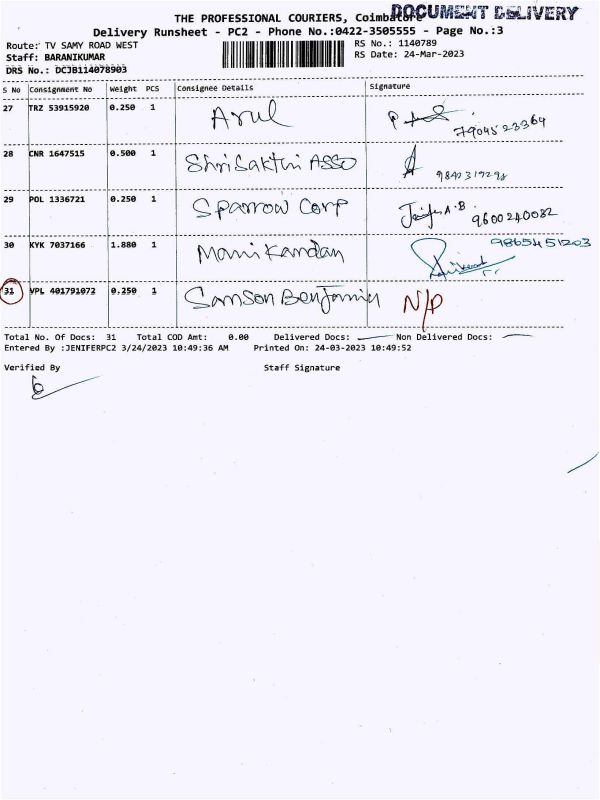 DOCUMENT DELIVERY
THE PROFESSIONAL COURIERS, Coimbatore
Delivery Runsheet - PC2 - Phone No.:0422-3505555 - Page No.:3
Route: TV SAMY ROAD WEST
RS No.: 1140789
Staff: BARANIKUMAR
RS Date: 24-Mar-2023
DRS No.: DCJB114078903
S No Consignment No Weight PCS Consignee Details Signature
27 TRZ 53915920 0.250 1 Arul
7904523364
28 CNR 1647515 0.500 1 Shrisakthi Asso
29 POL 1336721 0.250 1 Sparrow Corp
9600240082
30 KYK 7037166 1.880 1 Manikandan 9865451203
31 VPL 401791072 0.250 1 Samson Benjamin N/P
Total No. Of Docs: 31 Total COD Amt: 0.00 Delivered Docs: Non Delivered Docs:
Entered By :JENIFERPC2 3/24/2023 10:49:36 AM Printed On: 24-03-2023 10:49:52
Verified By Staff Signature